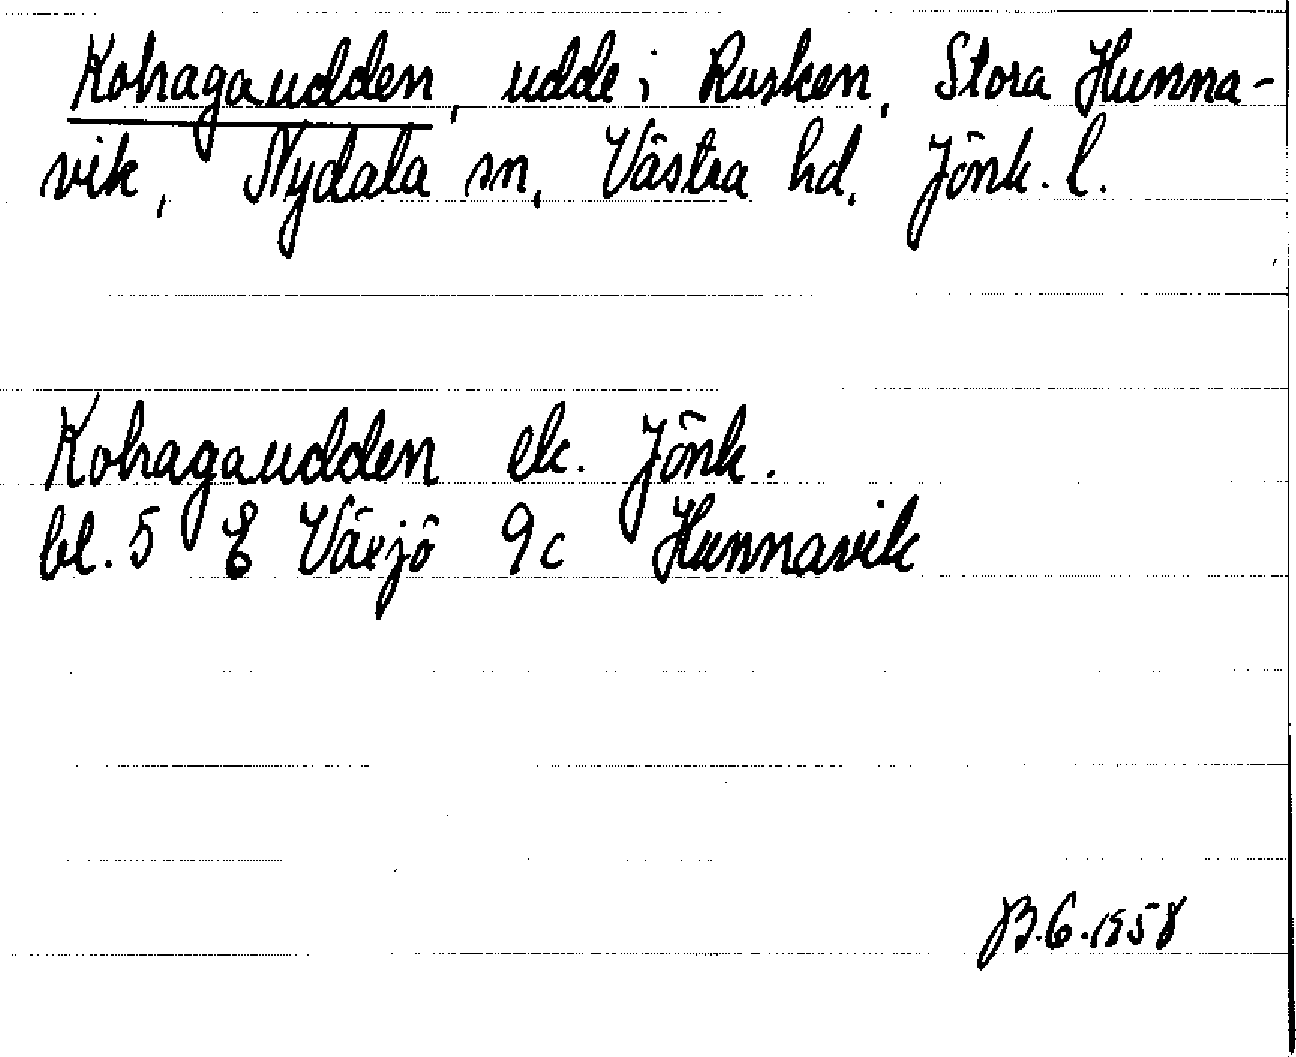 Kohagaudden, udde i Rusken, Stora Hunna-
vik, Nydala sn, Västra hd, Jönk. l.
Kohagaudden ek. Jönk.
bl. 5 E Växjö 9c Hunnavik
B.G.1958